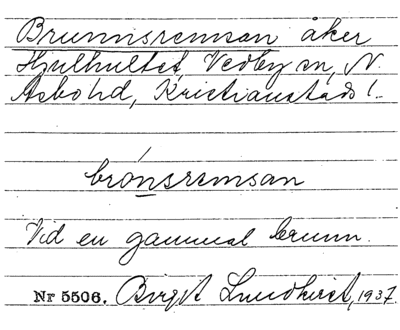 Brunnsremsan åker
Hjulhultet, Vedby sn, N.
Åsbo hd, Kristianstads l.
brónsremsan
Vid en gammal brunn.
Nr 5506. Birgit Lundkvist, 1937.